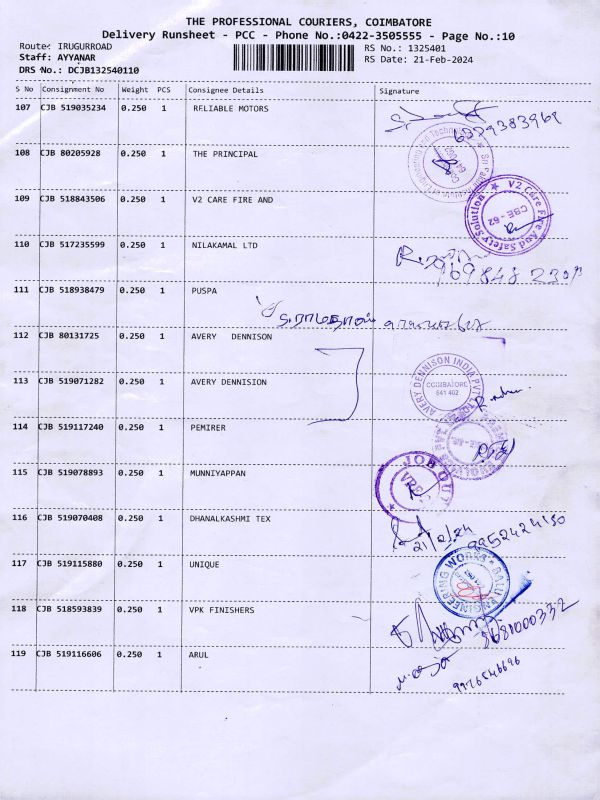 THE PROFESSIONAL COURIERS, COIMBATORE
Delivery Runsheet - PCC - Phone No.:0422-3505555 - Page No.:10
Route: IRUGURROAD
RS No.: 1325401
Staff: AYYANAR
RS Date: 21-Feb-2024
DRS No.: DCJB132540110
S No Consignment No Weight PCS Consignee Details Signature
107 CJB 519035234 0.250 1 RELIABLE MOTORS
6379383968
108 CJB 80205928 0.250 1 THE PRINCIPAL
109 CJB 518843506 0.250 1 V2 CARE FIRE AND
V2 Care Fire And Safety Solution
CBE - 62
110 CJB 517235599 0.250 1 NILAKAMAL LTD
111 CJB 518938479 0.250 1 PUSPA
112 CJB 80131725 0.250 1 AVERY DENNISON
113 CJB 519071282 0.250 1 AVERY DENNISION
AVERY DENNISON INDIA PVT
COIMBATORE
641 402
114 CJB 519117240 0.250 1 PEMIRER
115 CJB 519078893 0.250 1 MUNNIYAPPAN
JOB OUT
116 CJB 519070408 0.250 1 DHANALKASHMI TEX
21/2/24 9952424150
117 CJB 519115880 0.250 1 UNIQUE
BALU ENGINEERING WORKS
118 CJB 518593839 0.250 1 VPK FINISHERS
119 CJB 519116606 0.250 1 ARUL
9976546696